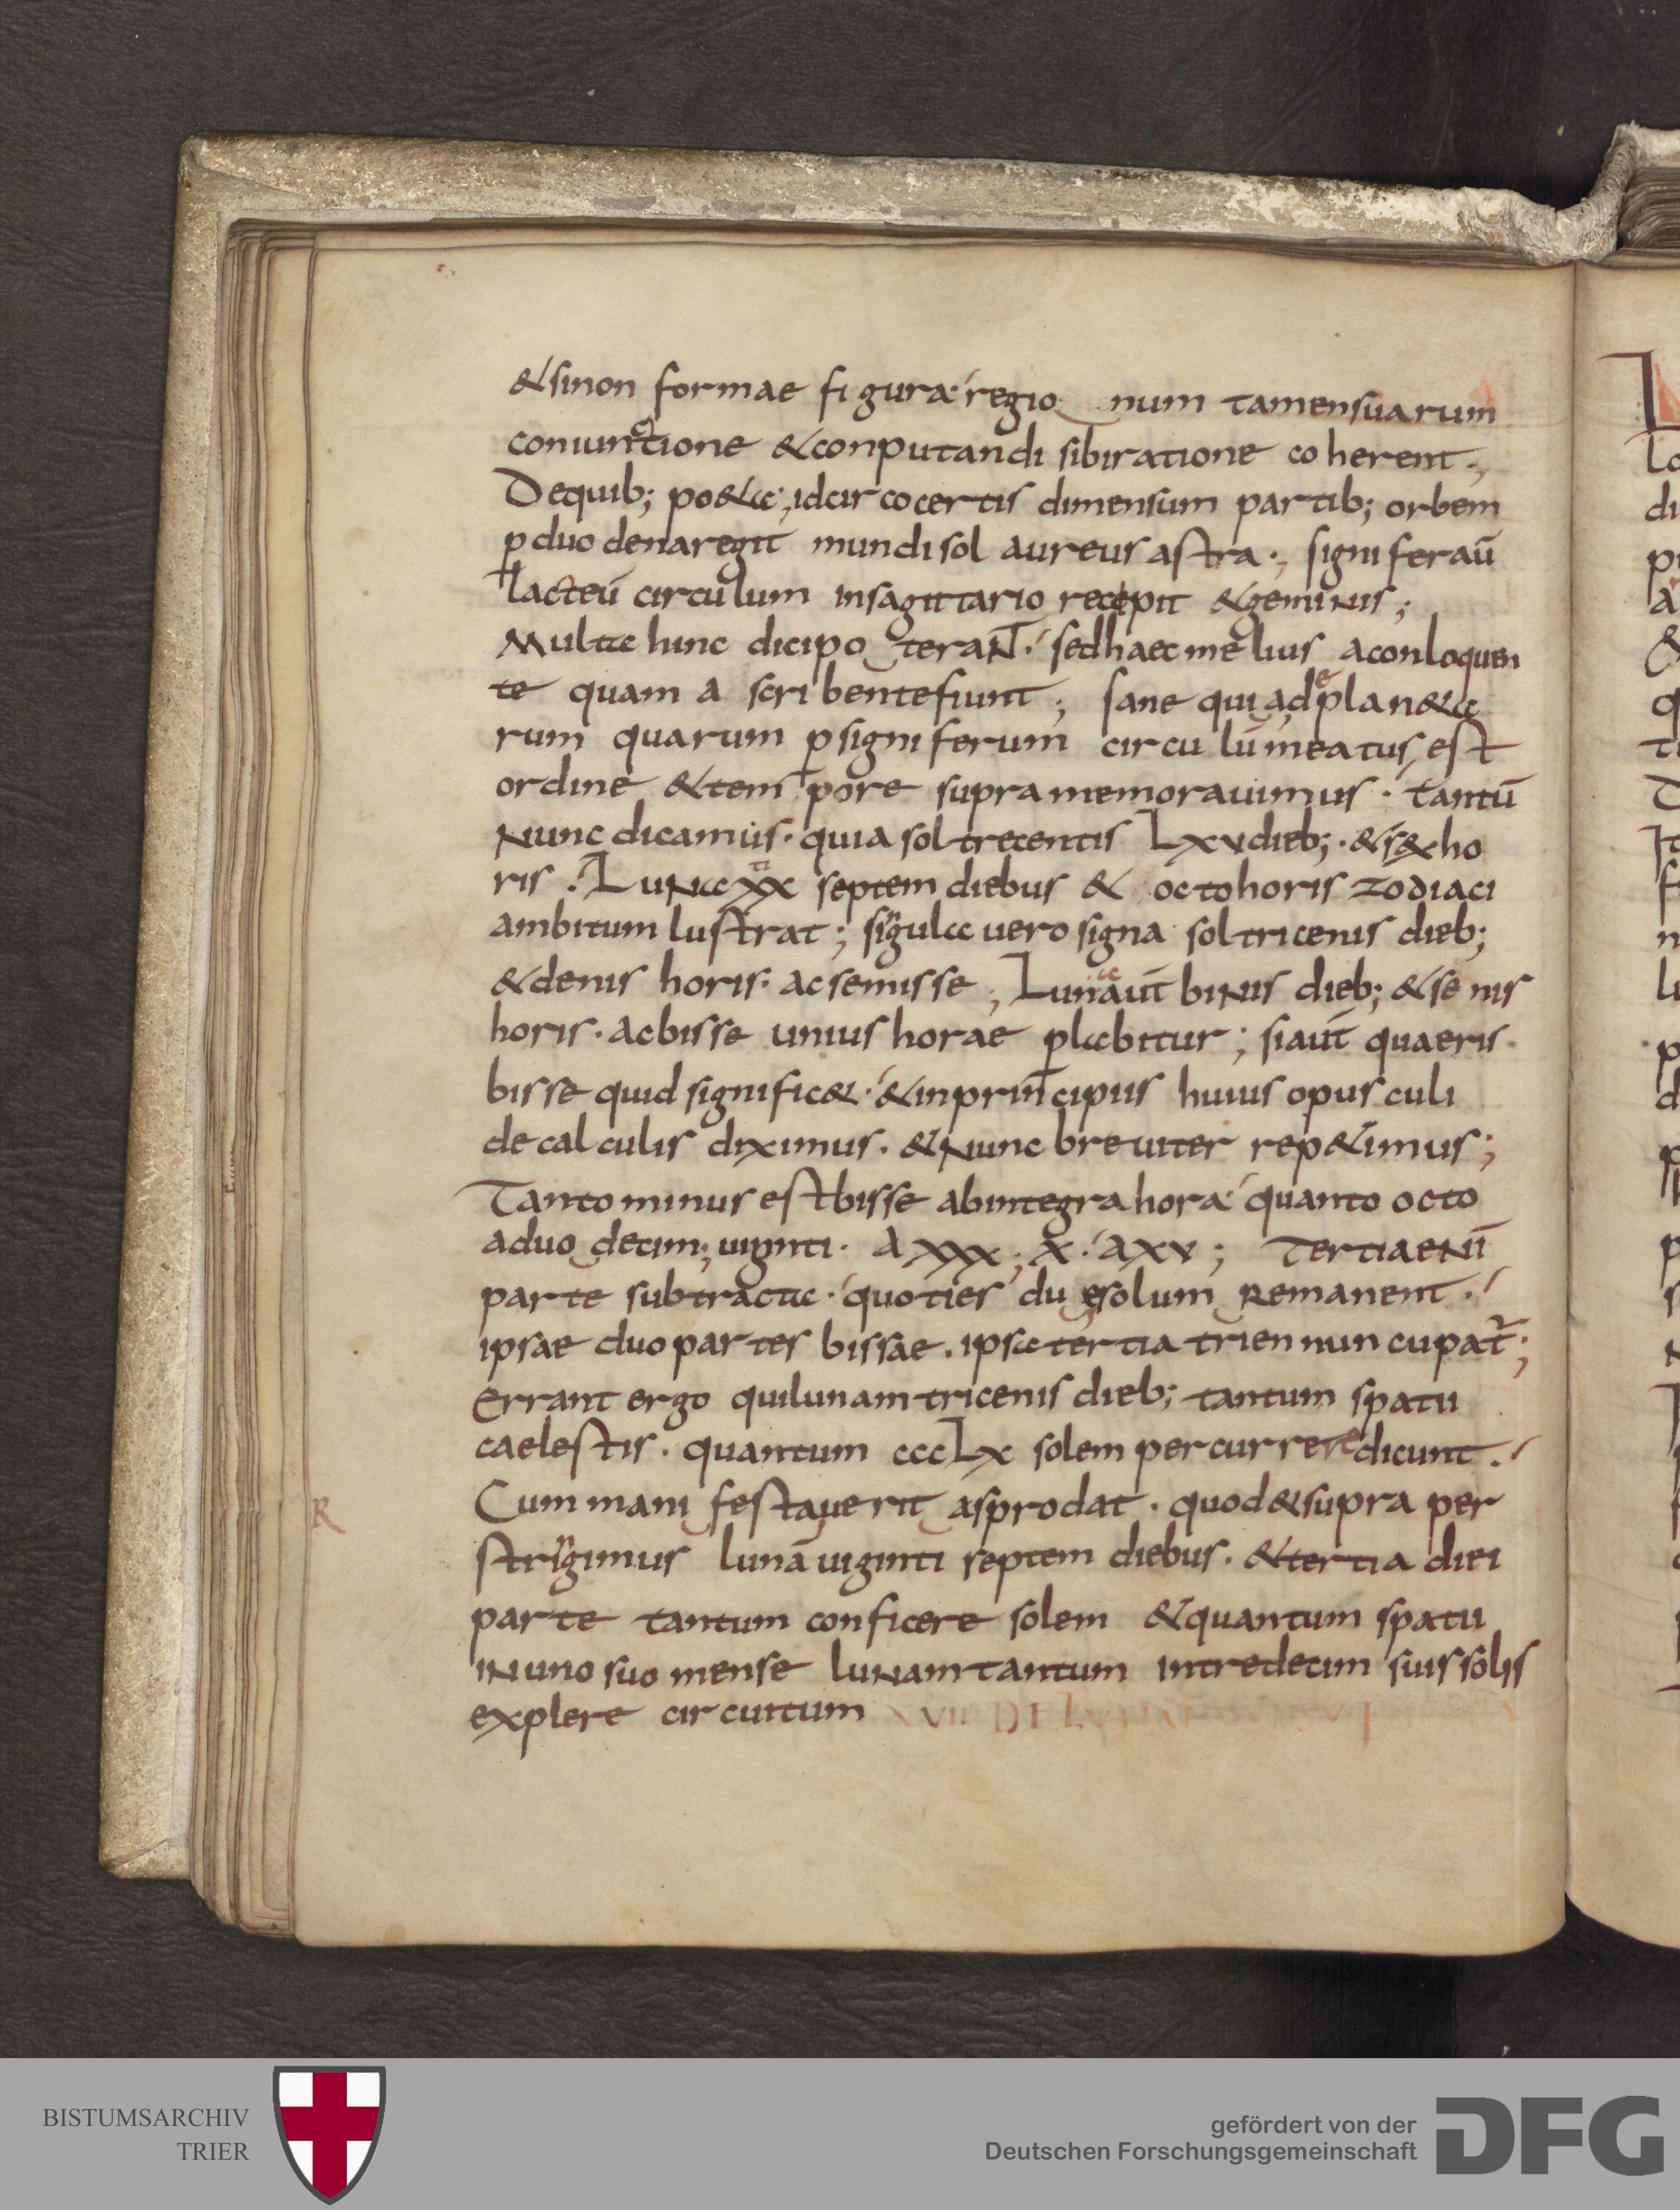 & sinon formae figura regio num tamen suarum
coniunctione & conputandi sibi ratione coherent.;
De quib; po&a; idcirco certis dimensum partib; orbem
p duodena regit mundi sol aureus astra.; signifer aū
lacteū circulum in sagittario recepit & geminis;
Multa hinc dici poteraN̄. sed haec melius a conloquen
te quam a scribente fiunt; sane quia de plan&a
rum quarum p signiferum circulū meatus est
ordine & tempore supra memorauimus. tantū
Nunc dicamus. quia sol trecentis Lxv dieb;. & s&x ho
ris. LuNa xx ti septem diebus & octo horis zodiaci
ambitum lustrat; singula uero signa sol tricenis dieb;
& denis horis. ac semisse; Luna aut̄ biNis dieb; & senis
horis. ac bisse unius horae p labitur; si aut̄ quaeris.
bisse quid signific&. & in principiis huius opusculi
de calculis diximus. & Nunc breuiter rep&imus;
Tanto minus est bisse ab integra hora quanto octo
a duodecim; uiginti. A xxx; x. A xv; Tertia eNī
parte subtracta. quoties du e solum Remanent.
ipsae duo partes bissae. ipsa tertia trien nuncupat̄;
errant ergo qui lunam tricenis dieb; tantum spatii
caelestis. quantum cccLx solem percurrere dicunt.
R
Cum manifesta uerit as prodat. quod & supra per
strinximus lunā uiginti septem diebus. & tertia diei
parte tantum conficere solem & quantum spatii
iN uno suo mense luNam tantum in tredecim suis solis
explere circuitum XVII DE
BISTUMSARCHIV
TRIER
gefördert von der
Deutschen Forschungsgemeinschaft
DFG